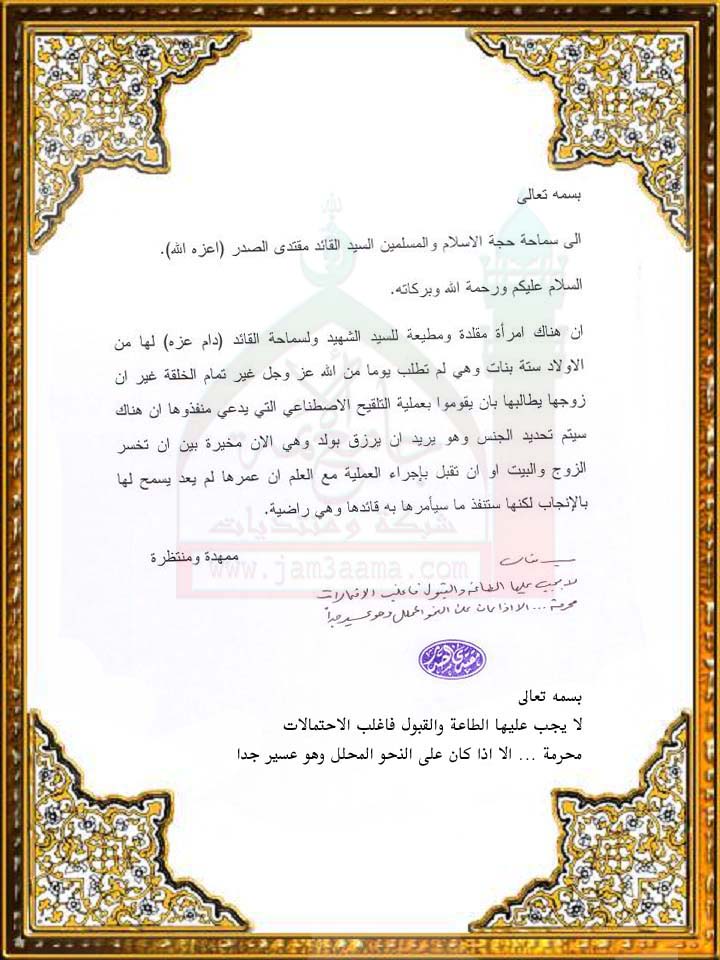 بسمه تعالى
الى سماحة حجة الاسلام والمسلمين السيد القائد مقتدى الصدر (اعزه الله).
السلام عليكم ورحمة الله وبركاته.
ان هناك امرأة مقلدة ومطيعة للسيد الشهيد ولسماحة القائد (دام عزه) لها من
الاولاد ستة بنات وهي لم تطلب يوما من الله عز وجل غير تمام الخلقة غير ان
زوجها يطالبها بان يقوموا بعملية التلقيح الاصطناعي التي يدعي منفذوها ان هناك
سيتم تحديد الجنس وهو يريد ان يرزق بولد وهي الان مخيرة بين ان تخسر
الزوج والبيت او ان تقبل بإجراء العملية مع العلم ان عمرها لم يعد يسمح لها
بالإنجاب لكنها ستنفذ ما سيأمرها به قائدها وهي راضية.
ممهدة ومنتظرة
شبكة ومنتديات
جامع الائمة
www.jam3aama.com
بسمه تعالى
لا يجب عليها الطاعة والقبول فاغلب الاحتمالات
محرمة ... الا اذا كان على النحو المحلل وهو عسير جداً
مقتدى الصدر
بسمه تعالى
لا يجب عليها الطاعة والقبول فاغلب الاحتمالات
محرمة ... الا اذا كان على النحو المحلل وهو عسير جدا